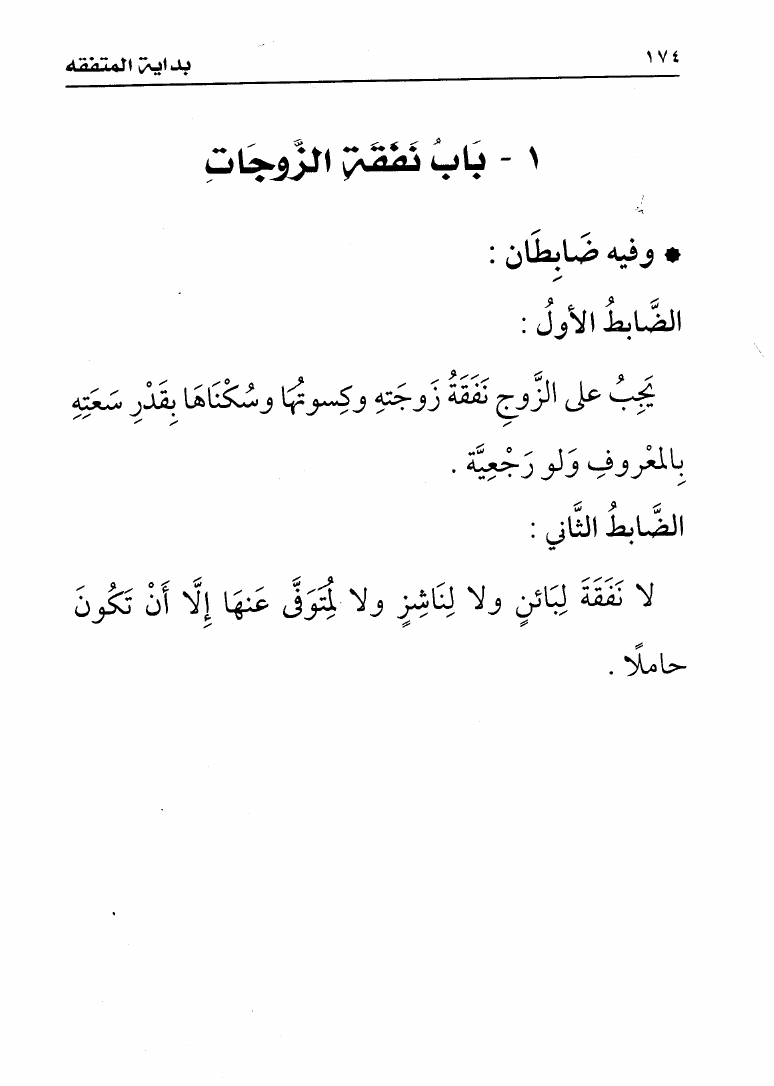 ١٧٤ بداية المتفقه
١ - بَابُ نَفَقَةِ الزَّوجَاتِ
* وفيه ضَابِطَان :
الضَّابطُ الأولُ :
يَجِبُ على الزَّوجِ نَفَقَةُ زَوجَتهِ وكِسوتُها وسُكْنَاهَا بِقَدْرِ سَعَتِهِ
بِالمعْروفِ وَلو رَجْعِيَّة .
الضَّابطُ الثَّاني :
لا نَفَقَةَ لِبَائنٍ ولا لِنَاشِزٍ ولا لمُتَوَفَّى عَنهَا إِلَّا أَنْ تَكُونَ
حاملًا .